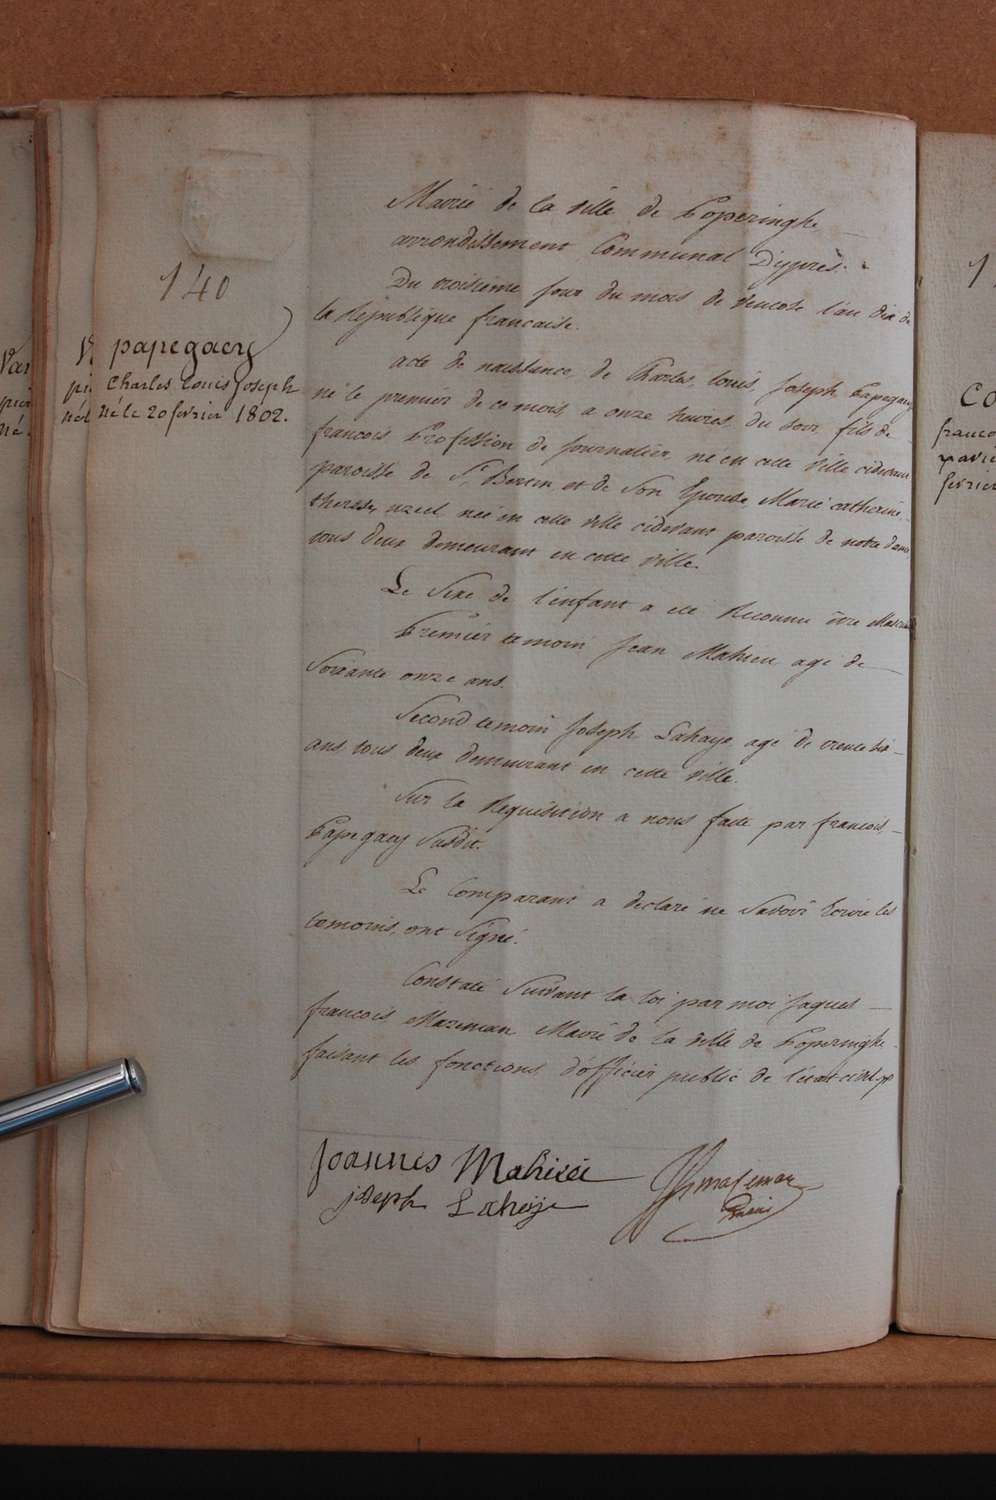 140
papegaey
Charles Louis Joseph
né le 20 fevrier 1802.
Mairie de la ville de Poperinghe
arrondissement Communal D'ypres.
Du troisieme jour du mois de ventose l'an dix de
la Republique francaise.
acte de naissance de Charles, louis, Joseph Papegaey
né le premier de ce mois, a onze heures du soir, fils de
francois Profession de Journalier, né en cette ville cidevant
paroisse de St Bertin, et de Son Epouse, Marie catherine
therese, uzeel née en cette ville cidevant paroisse de notre dame
tous deux demeurant en cette ville.
Le Sexe de l'enfant a eté Reconnu être Masculin
Premier temoin Jean Mahieu agé de
Soixante onze ans.
Second temoin Joseph Lahaye, agé de trente six
ans tous deux demeurant en cette ville.
Sur la Requisition a nous faite par francois,
Papegaey Susdit.
Le Comparant a declaré ne Savoir Ecrire les
temoins, ont Signé.
Constaté Suivant la loi par moi Jaques
francois Mazeman Maire de la ville de Poperinghe
faisant les fonctions d'officier public de l'état civil
Joannes Mahieu
joseph Laheÿe
Mazeman